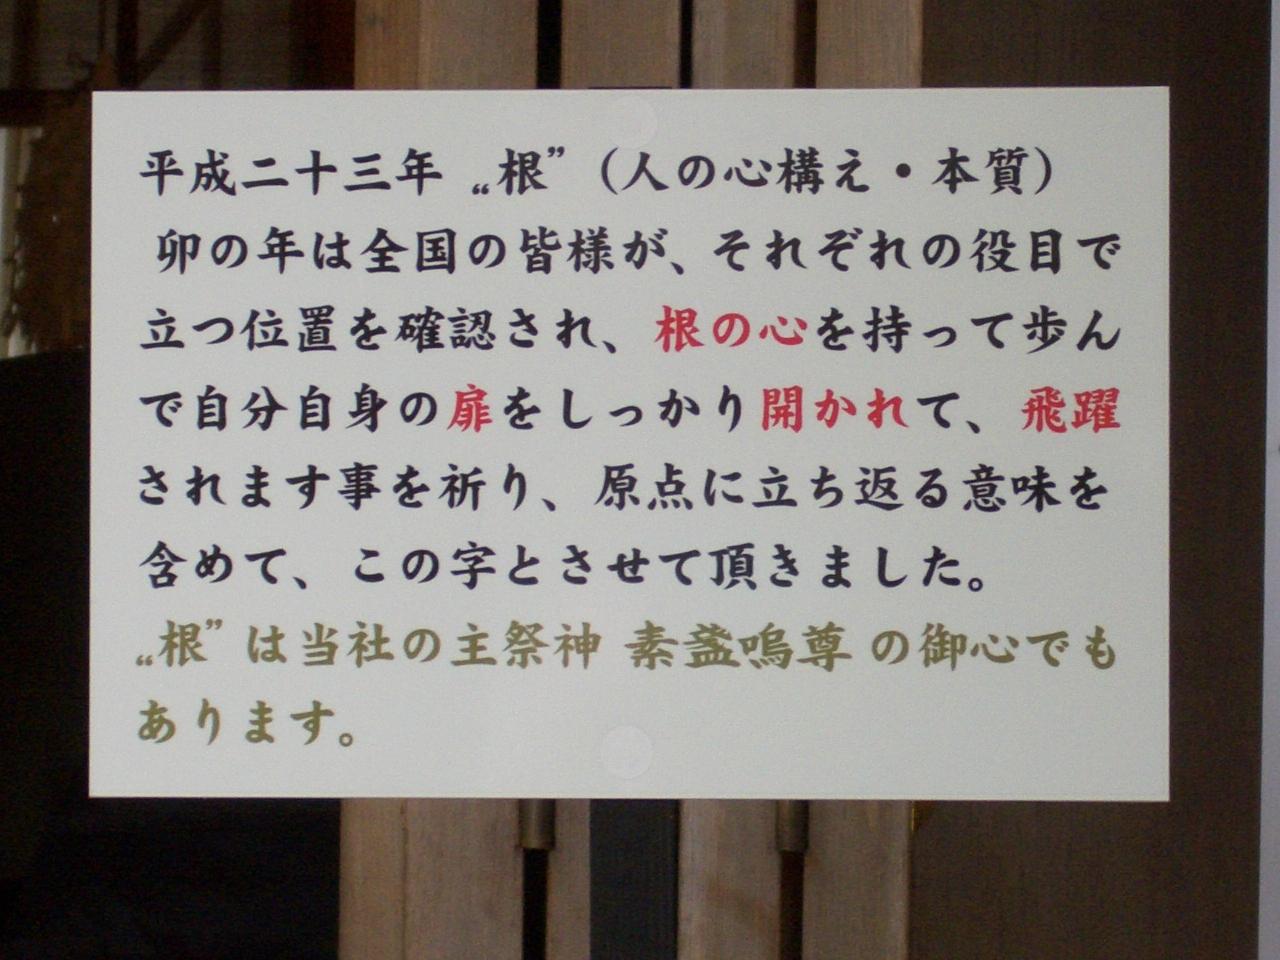 平成二十三年 „根”（人の心構え・本質）
卯の年は全国の皆様が、それぞれの役目で
立つ位置を確認され、根の心を持って歩ん
で自分自身の扉をしっかり開かれて、飛躍
されます事を祈り、原点に立ち返る意味を
含めて、この字とさせて頂きました。
„根” は当社の主祭神 素盞嗚尊 の御心でも
あります。